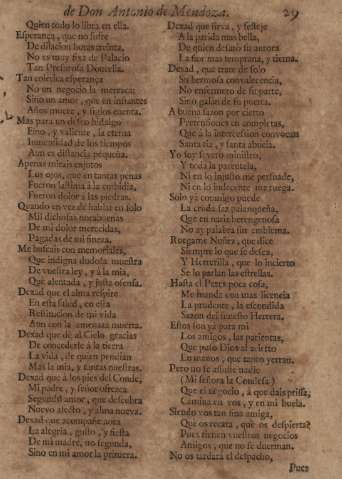 de Don Antonio de Mendoza. 29
Quien todo lo libra en ella.
Esperança, que no sufre
De dilacion horas treinta,
No es muy fixa de Palacio
Tan presurosa Doncella.
Tan colerica esperança
No un negocio la merezca:
Sino un amor, que en instantes
Años muere, y siglos cuenta.
Mas para un deseo hidalgo
Fino, y valiente, la eterna
Inmensidad de los tiempos
Aun es distancia pequeña.
Apenas mirais enjutos
Los ojos, que en tantas penas
Fueron lastima à la embidia,
Fueron dolor à las piedras.
Quando en vez de hablar en solo
Mil dichosas norabuenas
De mi dolor merecidas,
Pagadas de mi fineza.
Me buscais con memoriales,
Que indigna dudosa nuestra
De vuestra ley, y à la mia,
Que alentada, y justa ofensa.
Dexad que el alma respire
En esta salud, en esta
Restitucion de mi vida
Aun con la amenaza muerta.
Dexad que dè al Cielo gracias
De concederle à la tierra
La vida, de quien pendian
Mas la mia, y tantas nuestras.
Dexad que à los pies del Conde,
Mi padre, y señor ofrezca
Segundo amor, que descubra
Nuevo afecto, y alma nueva.
Dexad que acompañe aora
La alegria, gusto, y fiesta
De mi madre, no segunda,
Sino en mi amor la primera.
Dexad que sirva, y festeje
A la parida mas bella,
De quien descubrió su aurora
La flor mas temprana, y tierna.
Dexad, que trate de solo
Su hermosa convalecencia,
No enfermero de su parte,
Sino galan de su puerta.
A buena razon por cierto
Pretensiones en completas,
Que à la intercession convocan
Santa tia, y santa abuela.
Yo soy severo ministro,
Y toda la parentela,
Ni en lo injusto me persuade,
Ni en lo indecente me ruega.
Solo ya conmigo puede
La cruda faz palanqueña,
Que en mariz berengenosa
No ay palabra sin emblema.
Ruegame Nuñez, que dice
Siempre lo que se desea,
Y Herrerilla, que lo incierto
Se lo parlan las estrellas.
Hasta el Perez poca cosa,
Me hunda con mas licencia
La prudente, la escondida
Sazon del funesto Herrera.
Estos son ya para mi
Los amigos, las parientas,
Que puso Dios al acierto
En manos, que tanto yerran.
Pero no se assuste nadie
(Mi señora la Condesa)
Que el negocio, à que dais prissa,
Camina en vos, y en mi buela.
Siendo vos tan fina amiga,
Que os recata, què os despierta?
Pues tienen vuestros negocios
Amigos, que no se duerman.
No os tardarà el despacho,
Pues